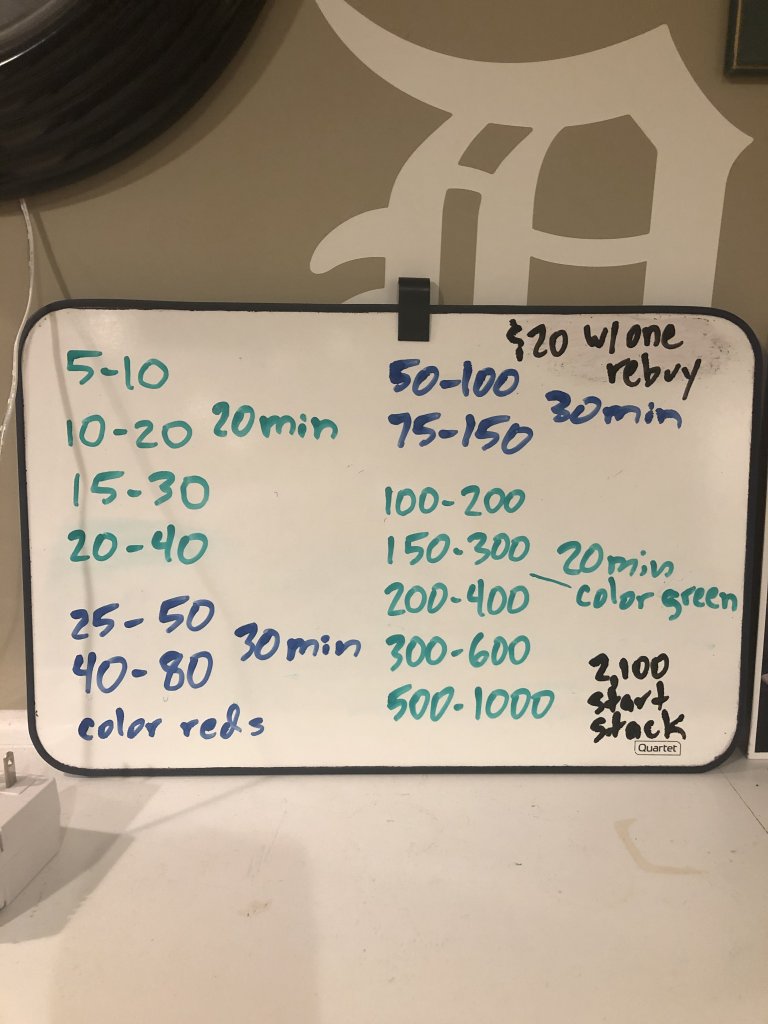 5-10
10-20 20min
15-30
20-40
25-50
40-80 30min
color reds
$20 w/one
rebuy
50-100
75-150 30min
100-200
150-300 20min
200-400 color green
300-600
500-1000
2,100
start
stack
Quartet